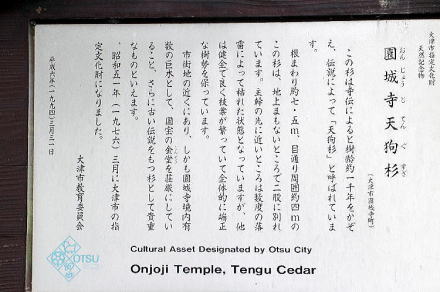 大津市指定文化財
天然記念物
おんじょうじてんぐすぎ
園城寺天狗杉
(大津市園城寺町)
この杉は寺伝によると樹齢約一千年をかぞ
え、伝説によって「天狗杉」と呼ばれていま
す。
根まわり約七・五m、目通り周囲約四mの
この杉は、地上まもないところで二股に別れ
ています。主幹の先に近いところは数度の落
雷によって枯れた状態となっていますが、他
は健全で良く枝葉が繁っていて全体的に端正
な樹勢を保っています。
市街地の近くにあり、しかも園城寺境内有
数の巨木として、国宝の金堂を荘厳にしてい
ること、さらに古い伝説をもつ杉として貴重
なものといえます。
昭和五一年(一九七六)三月に大津市の指
定文化財になりました。
大津市教育委員会
平成六年(一九九四)三月三一日
OTSU
Cultural Asset Designated by Otsu City
Onjoji Temple, Tengu Cedar